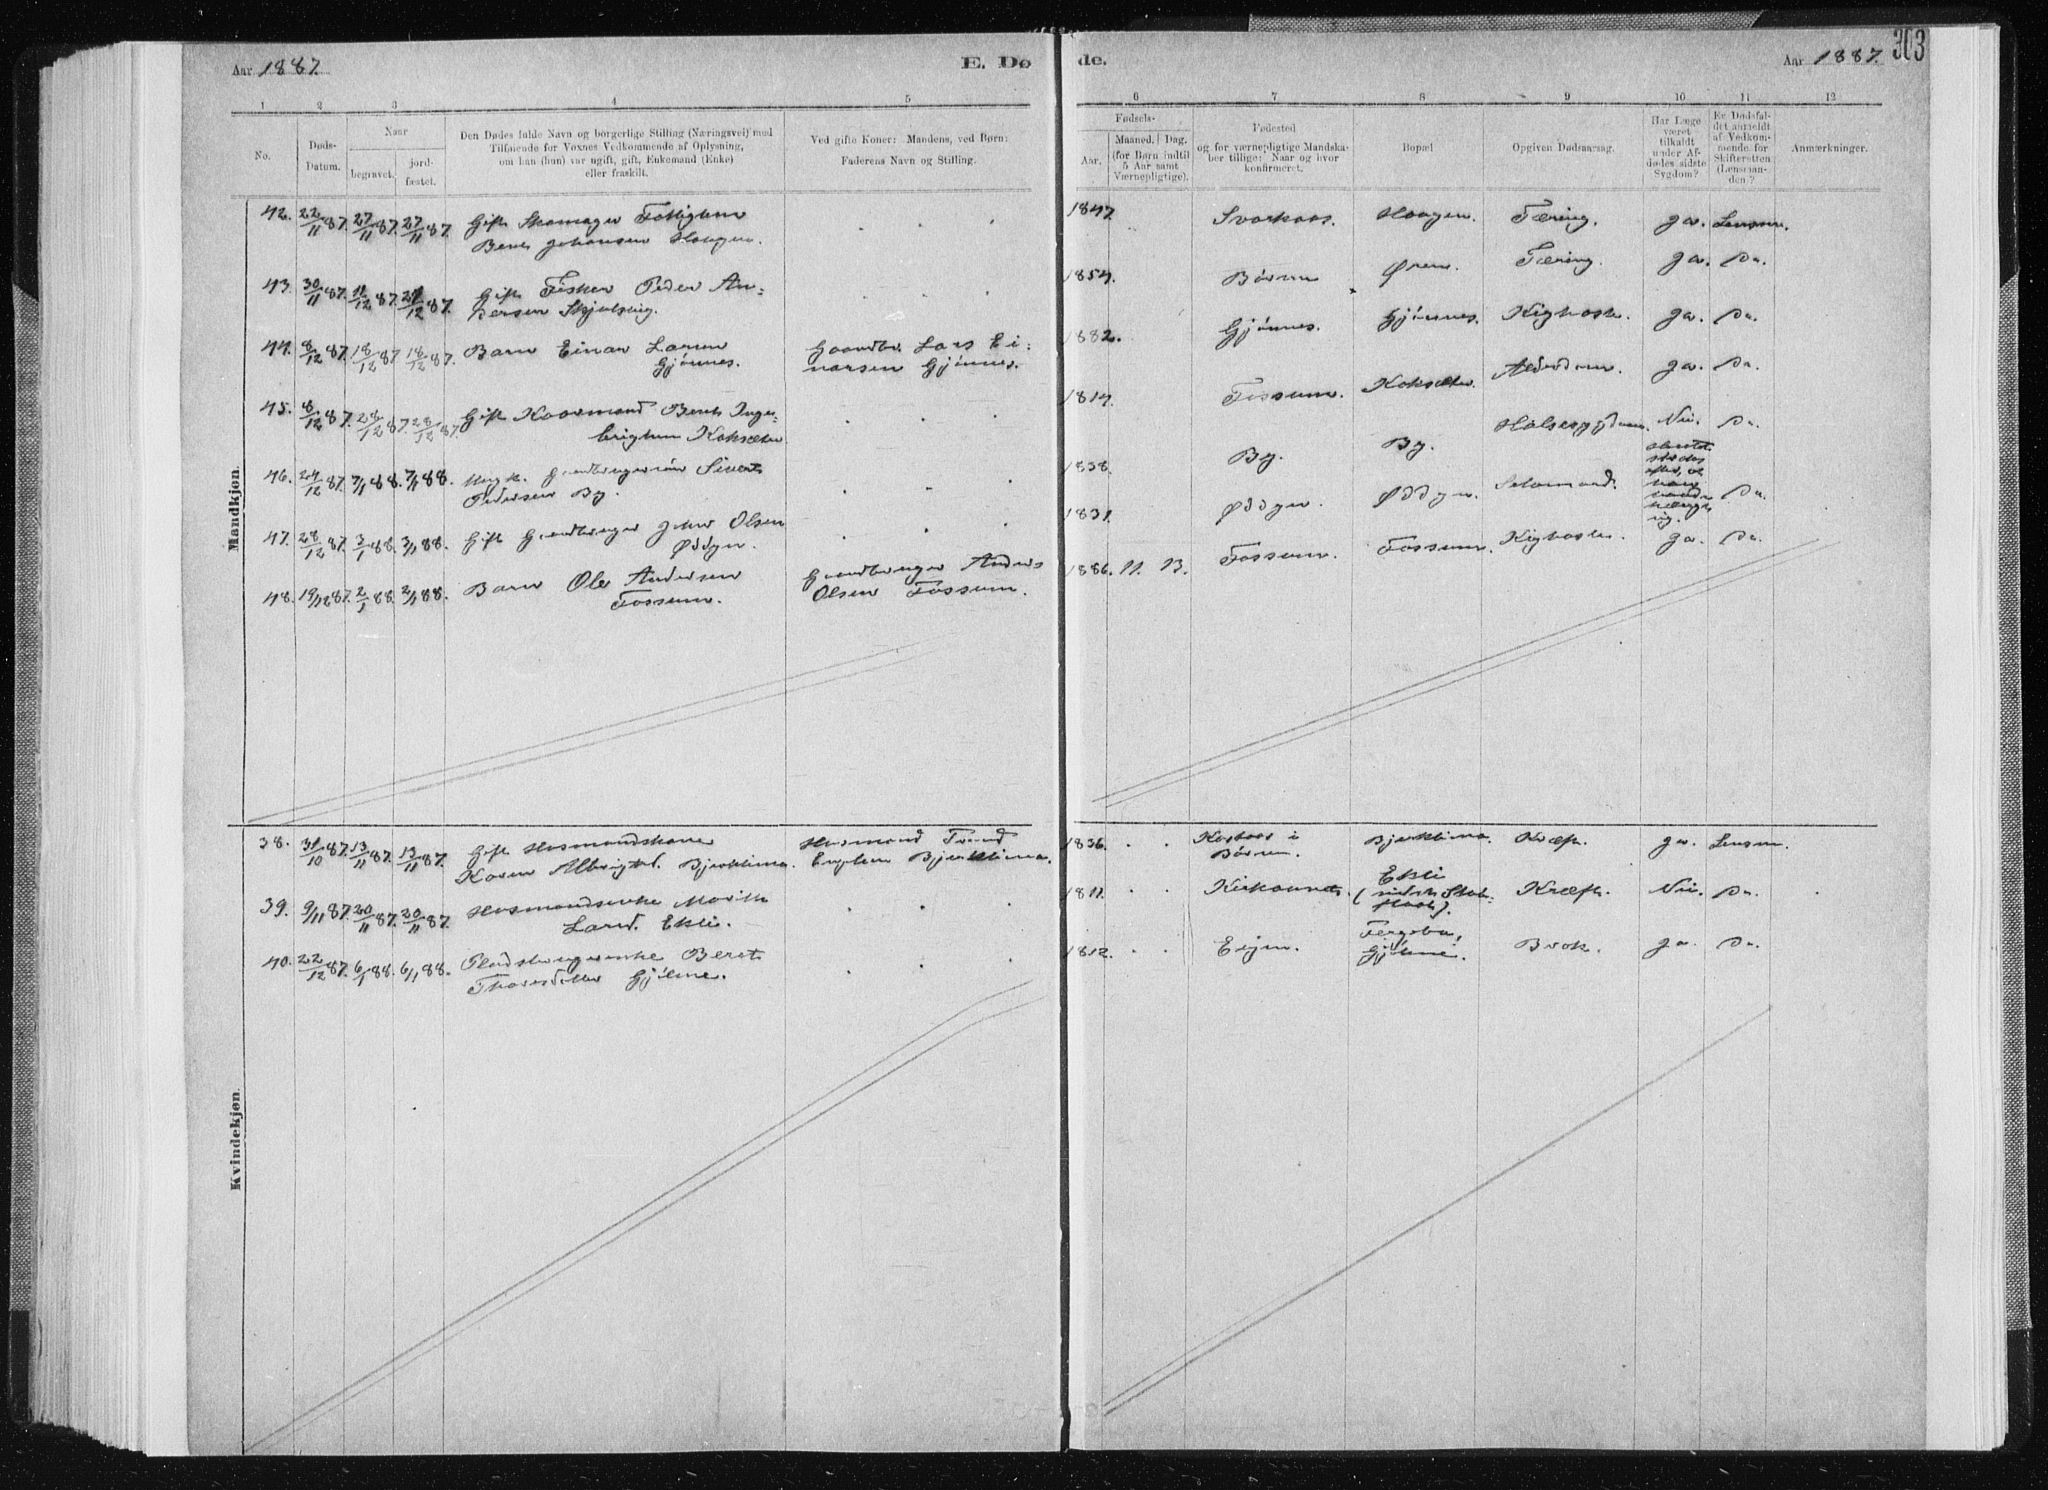 Aar 1887.
E. Dø
de.
Aar 1887.
303
1 2 3 4 5 6 7 8 9 10 11 12
No.
Døds-
Datum.
Naar
begravet.
jord-
fæstet.
Den Dødes fulde Navn og borgerlige Stilling (Næringsvei) med
Tilføiende for Voxnes Vedkommende af Oplysning,
om han (hun) var ugift, gift, Enkemand (Enke)
eller fraskilt.
Ved gifte Koner: Mandens, ved Børn:
Faderens Navn og Stilling.
Fødsels-
Aar.
Maaned. Dag.
(for Børn indtil
5 Aar samt
Værnepligtige).
Fødested
og for værnepligtige Mandska-
ber tillige: Naar og hvor
konfirmeret.
Bopæl
Opgiven Dødsaarsag.
Har Læge
været
tilkaldt
under Af-
dødes sidste
Sygdom?
Er Dødsfal-
det anmeldt
af Vedkom-
mende for
Skifteretten
(Lensman-
den?
Anmærkninger.
Mandkjøn.
42. 22/11 87. 27/11 87. 27/11 87. Gift Skomager
Bent Johansen Haagen. 1847. Svorkaas. Haagen. Tæring. Ja. Lensm.
43. 30/11 87. 11/12 87. 12 87. Gift Fisker Peder An-
dersen 1854. Børsen Øren. Tæring. Ja. Do.
44. 8/12 87. 18/12 87. 18/12 87. Barn Einar Larsen
Gjønnes. Gaardbr. Lars Ei-
narsen Gjønnes. 1882. Gjønnes. Gjønnes. Kighoste. Ja. Do.
45. 8/12 87. 28/12 87. 28/12 87. Gift Kaarmand Berent Inge-
brigtsen Koksæter 1814. Fossum. Koksæter. Alderdom. Ja. Do.
46. 24/12 87. 7/1 88. 7/1 88. Ungk. Sivert
Pedersen By. 1838. By. By. Halsesygdom. Nei. Do.
47. 28/12 87. 3/1 88. 3/1 88. Gift Gaardbruger John Olsen
Øddyn. 1831. Øddyn. Øddyn. Selvmord. Do.
48. 19/12 87. 2/1 88. 2/1 88. Barn Ole Andersen
Fossum. Gaardbruger Anders
Olsen Fossum. 1886. 11. 13. Fossum. Fossum. Kighoste. Ja. Do.
Kvindekjøn.
38. 31/10 87. 13/11 87. 13/11 87. Gift Husmandskone
Karen Albrigtsd. Bjerklima. Husmand Trond
Engelsen Bjerklima. 1836. i
Børsen. Bjerklima. Kræft. Ja. Lensm.
39. 9/11 87. 20/11 87. 20/11 87. Husmandsenke Marith
Larsd. Ekli. 1811. Kirkaunet. Ekli Kræft. Nei. Do.
40. 22/12 87. 6/1 88. 6/1 88. Pladsbrugerenke Beret
Thoresdatter Gjølme. 1812. Eijen. Gjølme. Brok. Ja. Do.